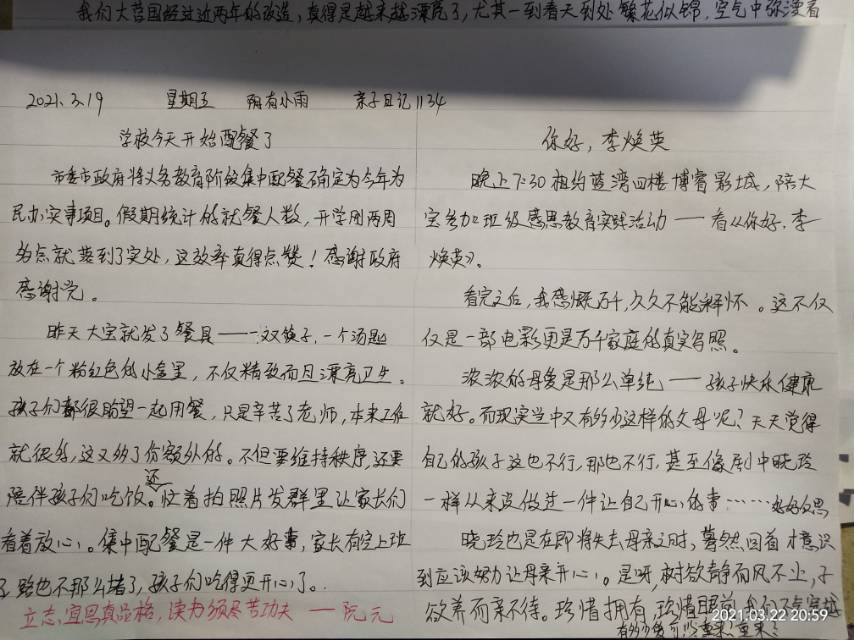 我们大营国经过近两年的改造，真得是越来越漂亮了，尤其一到春天到处繁花似锦，空气中弥漫着
2021.3.19 星期五 阴有小雨 亲子日记1134
学校今天开始配餐了
市委市政府将义务教育阶段集中配餐确定为今年为
民办实事项目。假期统计的就餐人数，开学刚两周
多点就落到了实处，这效率真得点赞！感谢政府
感谢党。
昨天大宝就发了餐具——一双筷子，一个汤匙
放在一个粉红色的小盒里，不仅精致而且漂亮卫生。
孩子们都很盼望一起用餐，只是辛苦了老师，本来工作
就很多，这又多了份额外的。不但要维持秩序，还要
陪伴孩子们吃饭。还忙着拍照片发群里让家长们
看着放心。集中配餐是一件大好事，家长有空上班
路也不那么堵了，孩子们吃得更开心了。
立志宜思真品格，读书须尽苦功夫 ——阮元
你好，李焕英
晚上7:30相约蓝湾四楼博睿影城，陪大
宝参加班级感恩教育实践活动——看《你好，李
焕英》。
看完之后，我感慨万千，久久不能释怀。这不仅
仅是一部电影更是万千家庭的真实写照。
浓浓的母爱是那么单纯——孩子快乐健康
就好。而现实当中又有多少这样的父母呢？天天觉得
自己的孩子这也不行，那也不行，甚至像剧中晓玲
一样从来没做过一件让自己开心的事……好好反思
晓玲也是在即将失去母亲之时，蓦然回首才意识
到应该努力让母亲开心。是呀，树欲静而风不止，子
欲养而亲不待。珍惜拥有，珍惜眼前
2021.03.22 20:59